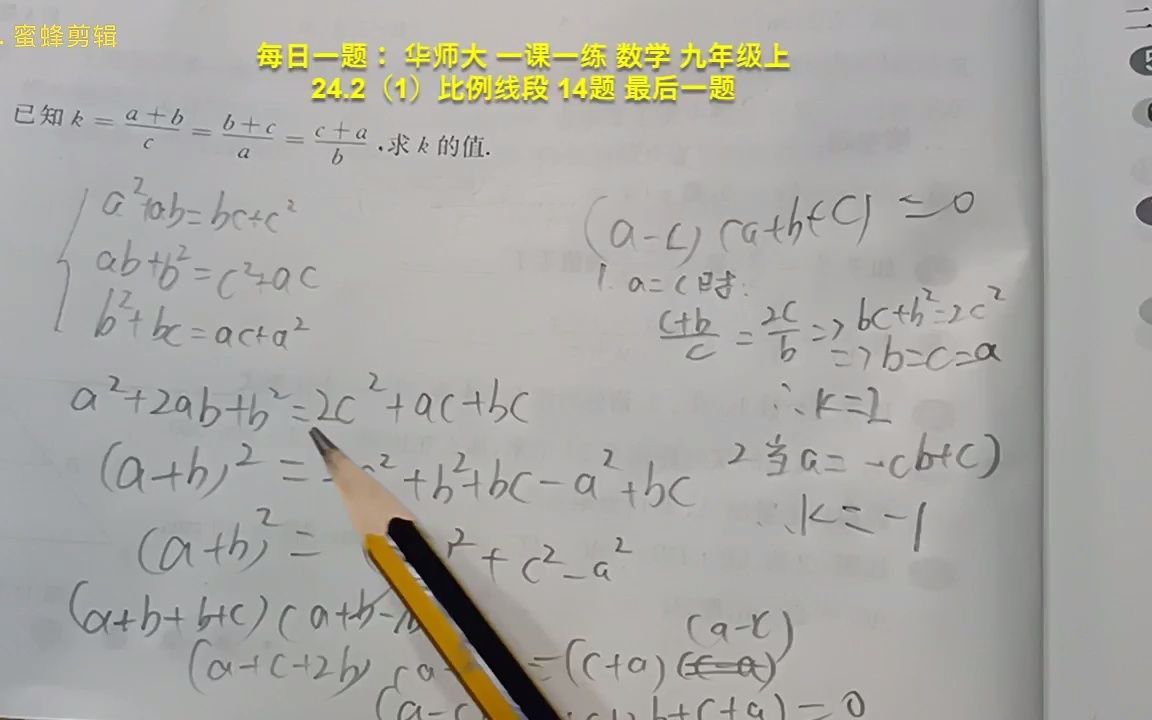 . 蜜蜂剪辑
每日一题： 华师大 一课一练 数学 九年级上
24.2（1）比例线段 14题 最后一题
二
已知 k = \frac{a+b}{c} = \frac{b+c}{a} = \frac{c+a}{b} .求 k 的值.
a²+ab=bc+c²
ab+b²=c²+ac
b²+bc=ac+a²
a²+2ab+b²=2c²+ac+bc
(a+b)² = ² +b²+bc-a²+bc
(a+b)² = ² + c²-a²
(a+b+b+c)(a+b-
(a+c+2b) =(c+a)
(a-c)
b+c+a)=0
(a-c)(a+b+c)=0
1. a=c时:
\frac{c+b}{c} = \frac{2c}{b} => bc+b²=2c²
=> b=c=a
∴k=2
2 当a=-(b+c)
∴k=-1